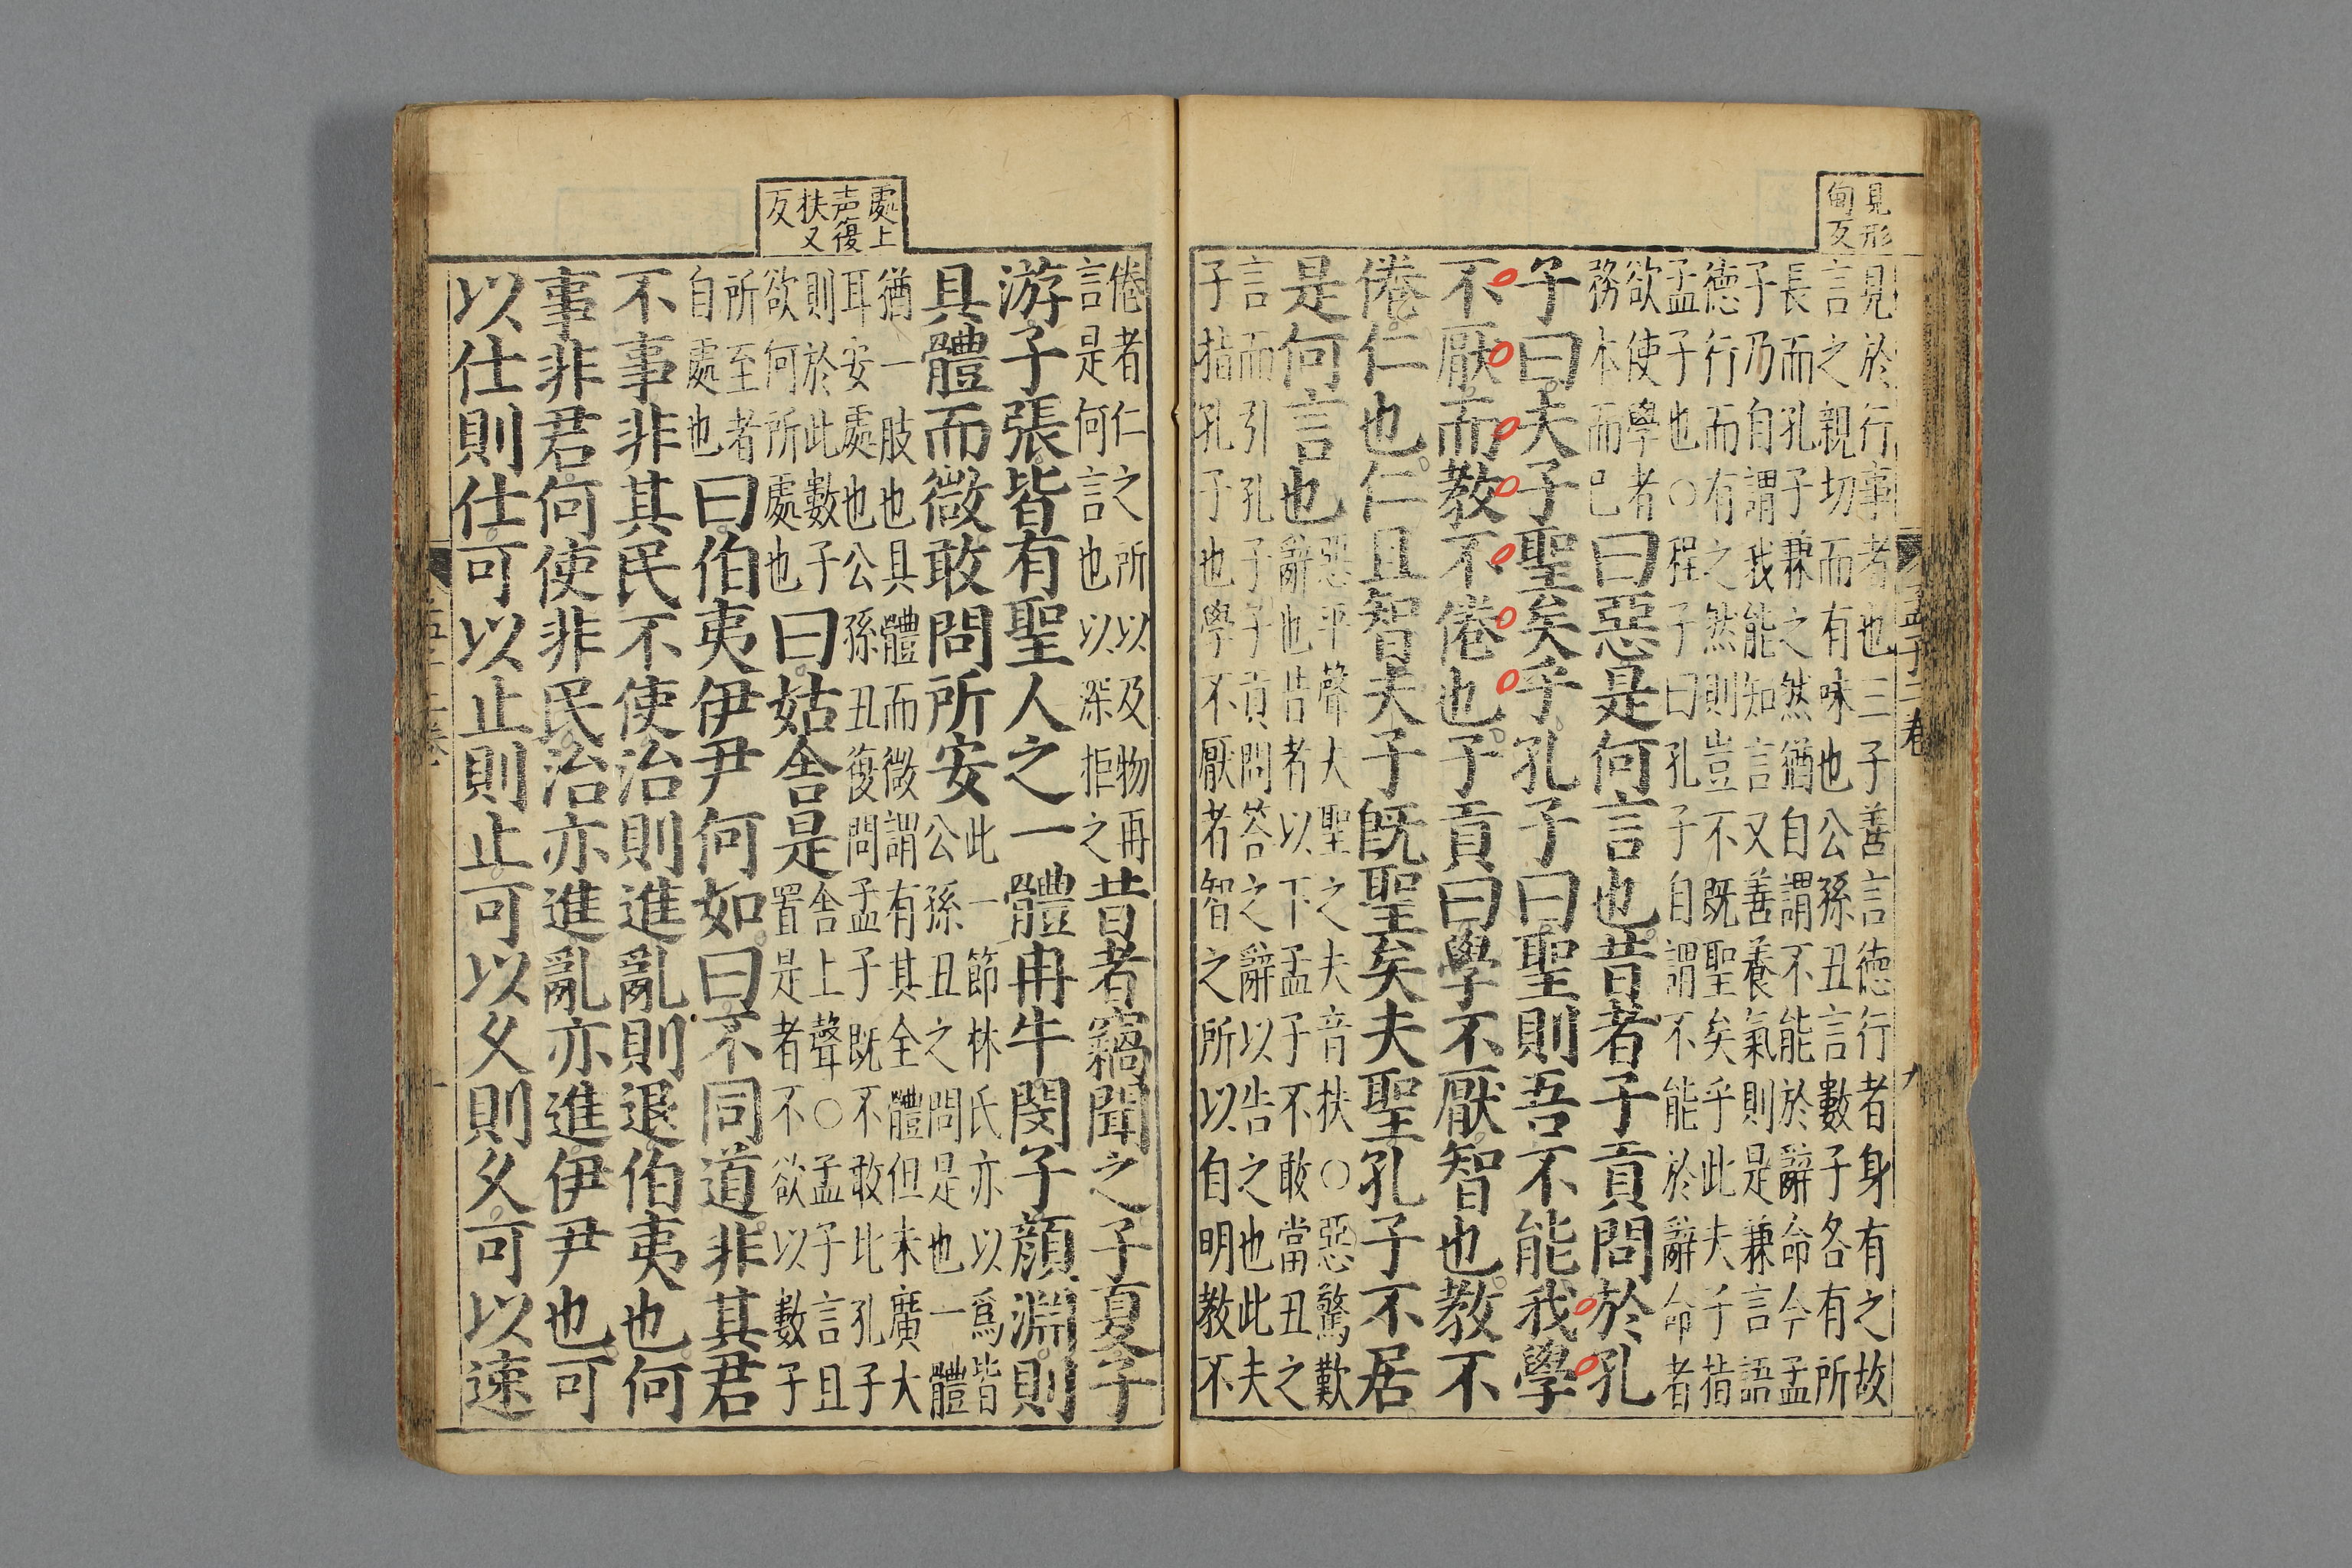 見形
甸反
見於行事者也三子善言德行者身有之故
言之親切而有味也公孫丑言數子各有所
長而孔子兼之然猶自謂不能於辭命今孟
子乃自謂我能知言又善養氣則是兼言語
德行而有之然則豈不既聖矣乎此夫子指
孟子也○程子曰孔子自謂不能於辭命者
欲使學者
務本而已
曰惡是何言也昔者子貢問於孔
子曰夫子聖矣乎孔子曰聖則吾不能我學
不厭而教不倦也子貢曰學不厭智也教不
倦仁也仁且智夫子既聖矣夫聖孔子不居
是何言也
惡平聲夫聖之夫音扶○惡驚歎
辭也昔者以下孟子不敢當丑之
言而引孔子子貢問答之辭以告之也此夫
子指孔子也學不厭者智之所以自明教不
孟子二卷
九
倦者仁之所以及物再
言是何言也以深拒之
昔者竊聞之子夏子
游子張皆有聖人之一體冉牛閔子顏淵則
具體而微敢問所安
此一節林氏亦以爲皆
公孫丑之問是也一體
猶一肢也具體而微謂有其全體但未廣大
耳安處也公孫丑復問孟子既不敢比孔子
則於此數子
欲何所處也
曰姑舍是
舍上聲○孟子言且
置是者不欲以數子
所至者
自處也
曰伯夷伊尹何如曰不同道非其君
不事非其民不使治則進亂則退伯夷也何
事非君何使非民治亦進亂亦進伊尹也可
以仕則仕可以止則止可以久則久可以速
處上
声復
扶又
反